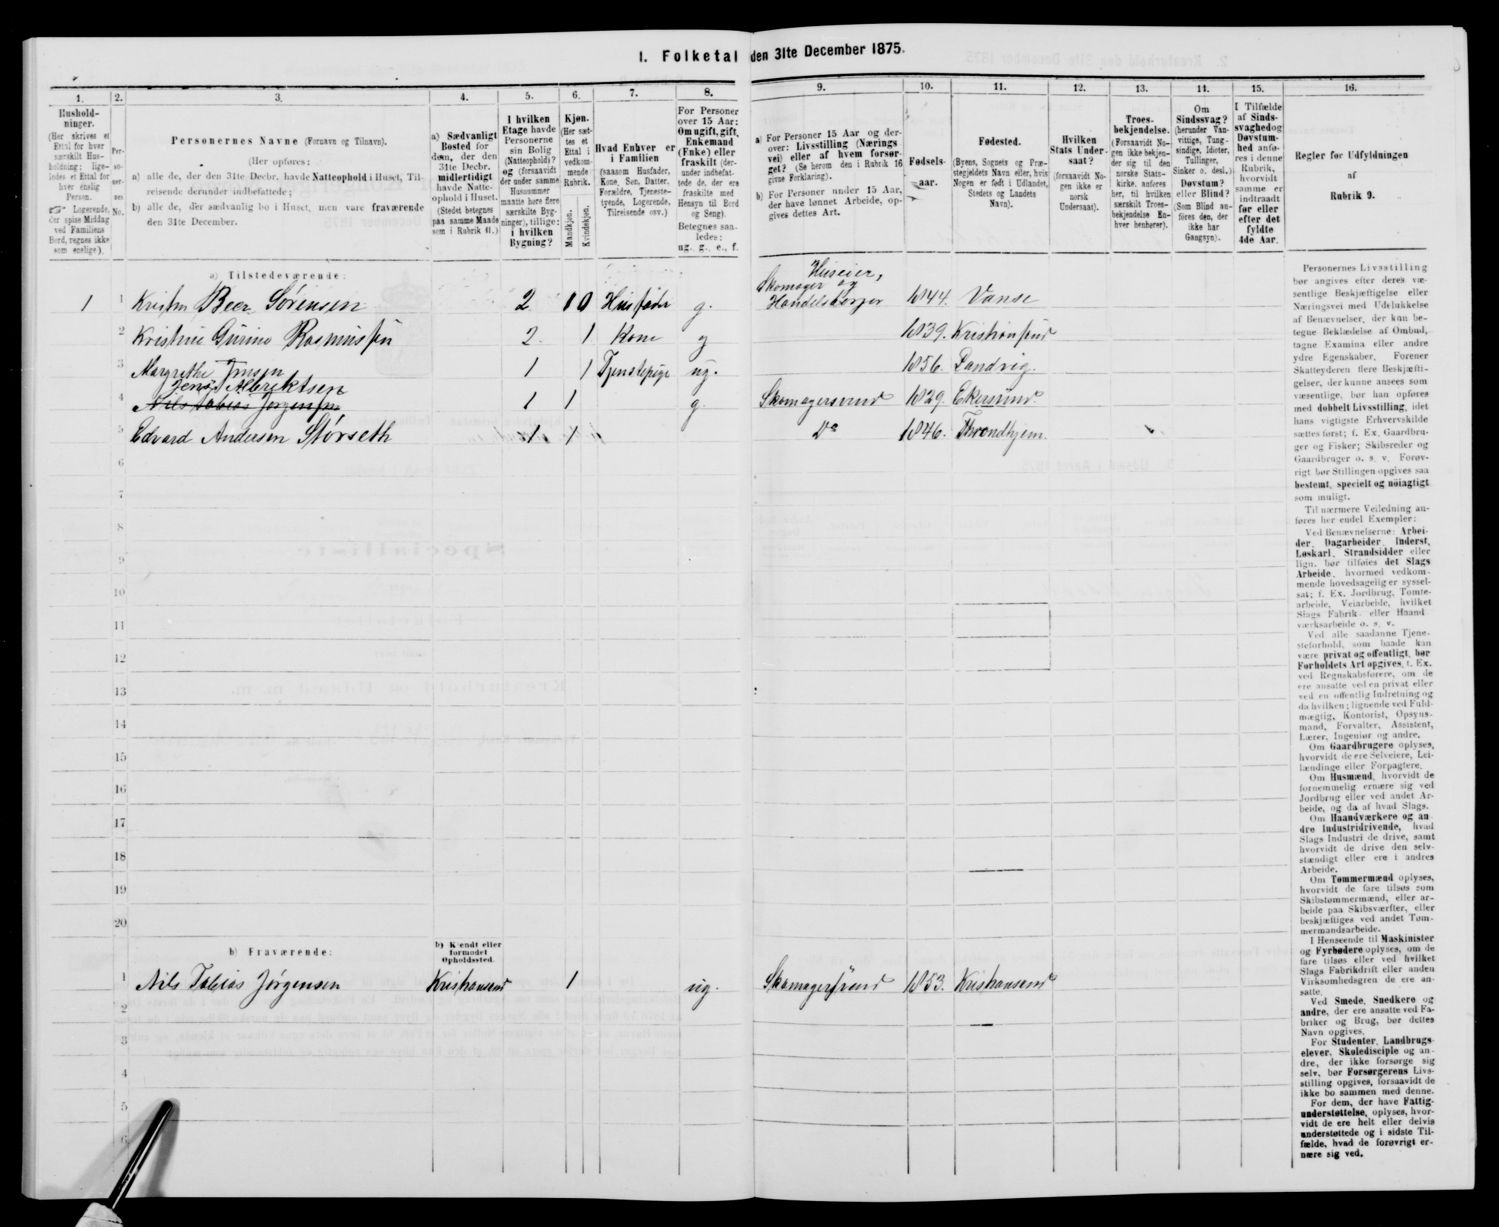 I. Folketal den 31te December 1875.
1.
2.
3.
4.
5.
6.
7.
8.
9.
10.
11.
12.
13.
14.
15.
16.
Hushold-
ninger.
(Her skrives et
Ettal for hver
særskilt Hus-
holdning; lige-
ledes et Ettal for
hver enslig
Person.
Logerende,
der spise Middag
ved Familiens
Bord, regnes ikke
som enslige).
Per-
so-
ner-
nes
No.
Personernes Navne (Fornavn og Tilnavn).
(Her opføres:
a) alle de, der den 31te Decbr. havde Natteophold i Huset, Til-
reisende derunder indbefattede;
b) alle de, der sædvanlig bo i Huset, men vare fraværende
den 31te December.
a) Sædvanligt
Bosted for
dem, der den
31te Decbr.
midlertidigt
havde Natte-
ophold i Huset.
(Stedet betegnes
paa samme Maade
som i Rubrik 11.)
I hvilken
Etage havde
Personerne
sin Bolig
(Natteophold)?
og (forsaavidt
der under samme
Husnummer
maatte høre flere
særskilte Byg-
ninger), tillige:
i hvilken
Bygning?
Kjøn.
(Her sæt-
tes et
Ettal i
vedkom-
mende
Rubrik.
Mandkjøn.
Kvindekjøn.
Hvad Enhver er
i Familien
(saasom Husfader,
Kone, Søn, Datter,
Forældre, Tjeneste-
tyende, Logerende,
Tilreisende osv.)
For Personer
over 15 Aar:
Om ugift, gift,
Enkemand
(Enke) eller
fraskilt (der-
under indbefat-
tede de, der ere
fraskilte med
Hensyn til Bord
og Seng).
Betegnes saa-
ledes:
ug. g., e., f.
a) For Personer 15 Aar og der-
over: Livsstilling (Nærings
vei) eller af hvem forsør-
get? (Se herom den i Rubrik 16
givne Forklaring).
b) For Personer under 15 Aar,
der have lønnet Arbeide, op-
gives dettes Art.
Fødsels-
aar.
Fødested.
(Byens, Sognets og Præ-
stegjeldets Navn eller, hvis
Nogen er født i Udlandet,
Stedets og Landets
Navn).
Hvilken
Stats Under-
saat?
(forsaavidt No-
gen ikke er
norsk
Undersaat).
Troes-
bekjendelse.
(Forsaavidt No-
gen ikke bekjen-
der sig til den
norske Stats-
kirke, anføres
her, til hvilken
særskilt Troes-
bekjendelse En-
hver henhører).
Om
Sindssvag?
(herunder Van-
vittige, Tung-
sindige, Idioter,
Tullinger,
Sinker o. desl.)
Døvstum?
eller Blind?
(Som Blind an-
føres den, der
ikke har
Gangsyn).
I Tilfælde
af Sinds-
svaghed og
Døvstum-
hed anfø-
res i denne
Rubrik,
hvorvidt
samme er
indtraadt
før eller
efter det
fyldte
4de Aar.
Regler for Udfyldningen
af
Rubrik 9.
a) Tilstedeværende:
1 1 Kristen Beer Sørensen 2 1 0 Husfader g. Huseier, Skomager og Handelsborger 1844. Vanse
2 Kristine Gurine Rasmussen 2. 1 Kone g 1839. Kristiansund
3 Margrethe Jensen 1 1 Tjenstepige ug. 1856. Landvig.
Jens Albrektsen
4 Nils Tobias Jørgensen 1 1 g. Skomagersvend 1829. Ekersund
5 Edvard Andersen Størseth 1 1 Do 1846. Throndhjem.
6
7
8
9
10
11
12
13
14
15
16
17
18
19
20
b) Fraværende:
b) Kjendt eller
formodet
Opholdssted.
1 Nils Tobias Jørgensen Kristiansand 1 ug. Skomagersvend 1853. Kristiansand
2
3
4
5
6
Personernes Livsstilling
bør angives efter deres væ-
sentlige Beskjæftigelse eller
Næringsvei med Udelukkelse
af Benævnelser, der kun be-
tegne Beklædelse af Ombud,
tagne Examina eller andre
ydre Egenskaber. Forener
Skatteyderen flere Beskjæfti-
gelser, der kunne ansees som
væsentlige, bør han opføres
med dobbelt Livsstilling, idet
hans vigtigste Erhvervskilde
sættes først; f. Ex. Gaardbru-
ger og Fisker; Skibsreder og
Gaardbruger o. s. v. Forøv-
rigt bør Stillingen opgives saa
bestemt, specielt og nøiagtigt
som muligt.
Til nærmere Veiledning an-
føres her endel Exempler:
Ved Benævnelserne: Arbei-
der, Dagarbeider, Inderst,
Løskarl, Strandsidder eller
lign. bør tilføies det Slags
Arbeide, hvormed vedkom-
mende hovedsagelig er syssel-
sat; f. Ex. Jordbrug, Tomte-
arbeide, Veiarbeide, hvilket
Slags Fabrik- eller Haand-
værksarbeide o. s. v.
Ved alle saadanne Tjene-
steforhold, som baade kan
være privat og offentligt, bør
Forholdets Art opgives, t. Ex.
ved Regnskabsførere, om de
ere ansatte ved en privat eller
ved en offentlig Indretning og
da hvilken; lignende ved Fuld-
mægtig, Kontorist, Opsyns-
mand, Forvalter, Assistent,
Lærer, Ingeniør og andre.
Om Gaardbrugere oplyses,
hvorvidt de ere Selveiere, Lei-
lændinge eller Forpagtere.
Om Husmænd, hvorvidt de
fornemmelig ernære sig ved
Jordbrug eller ved andet Ar-
beide, og da af hvad Slags.
Om Haandværkere og an
dre Industridrivende, hvad
Slags Industri de drive, samt
hvorvidt de drive den selv-
stændigt eller ere i andres
Arbeide.
Om Tømmermænd oplyses,
hvorvidt de fare tilsøs som
Skibstømmermænd, eller ar-
beide paa Skibsværfter, eller
beskjæftiges ved andet Tøm-
mermandsarbeide.
I Henseende til Maskinister
og Fyrbødere oplyses, om de
fare tilsøs eller ved hvilket
Slags Fabrikdrift eller anden
Virksomhedsgren de ere an-
satte.
Ved Smede, Snedkere og
andre, der ere ansatte ved Fa-
briker og Brug, bør dettes
Navn opgives.
For Studenter, Landbrugs-
elever, Skoledisciple og an-
dre, der ikke forsørge sig
selv, bør Forsørgerens Livs-
stilling opgives, forsaavidt de
ikke bo sammen med denne.
For dem, der have Fattig-
understøttelse, oplyses, hvor-
vidt de ere helt eller delvis
understøttede og i sidste Til-
fælde, hvad de forøvrigt er-
nære sig ved.